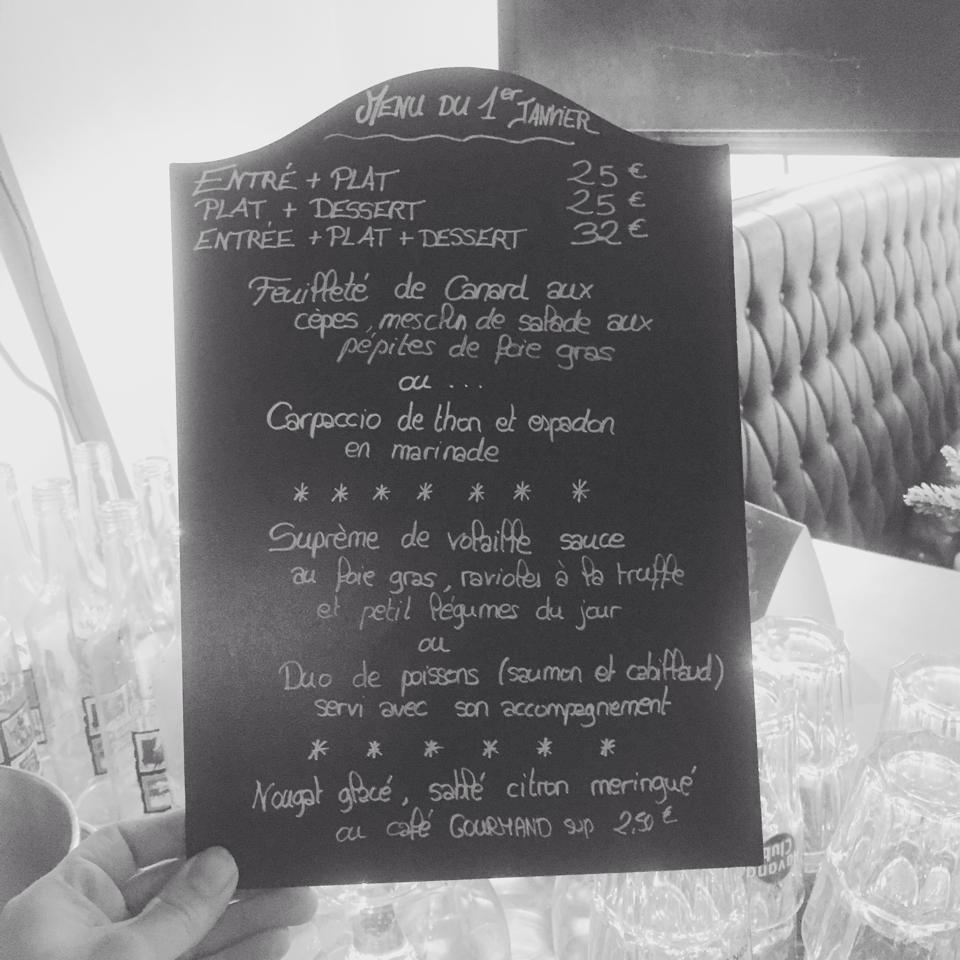 MENU DU 1er JANVIER
ENTRÉ + PLAT 25 €
PLAT + DESSERT 25 €
ENTRÉE + PLAT + DESSERT 32 €
Feuilleté de Canard aux
cèpes, mesclun de salade aux
pépites de foie gras
ou ...
Carpaccio de thon et espadon
en marinade
* * * * * * *
Suprème de volaille sauce
au foie gras, ravioles à la truffe
et petit légumes du jour
ou
Duo de poissons (saumon et cabillaud)
servi avec son accompagnement
* * * * * *
Nougat glacé, sablé citron meringué
ou café GOURMAND sup 2,50 €
Club